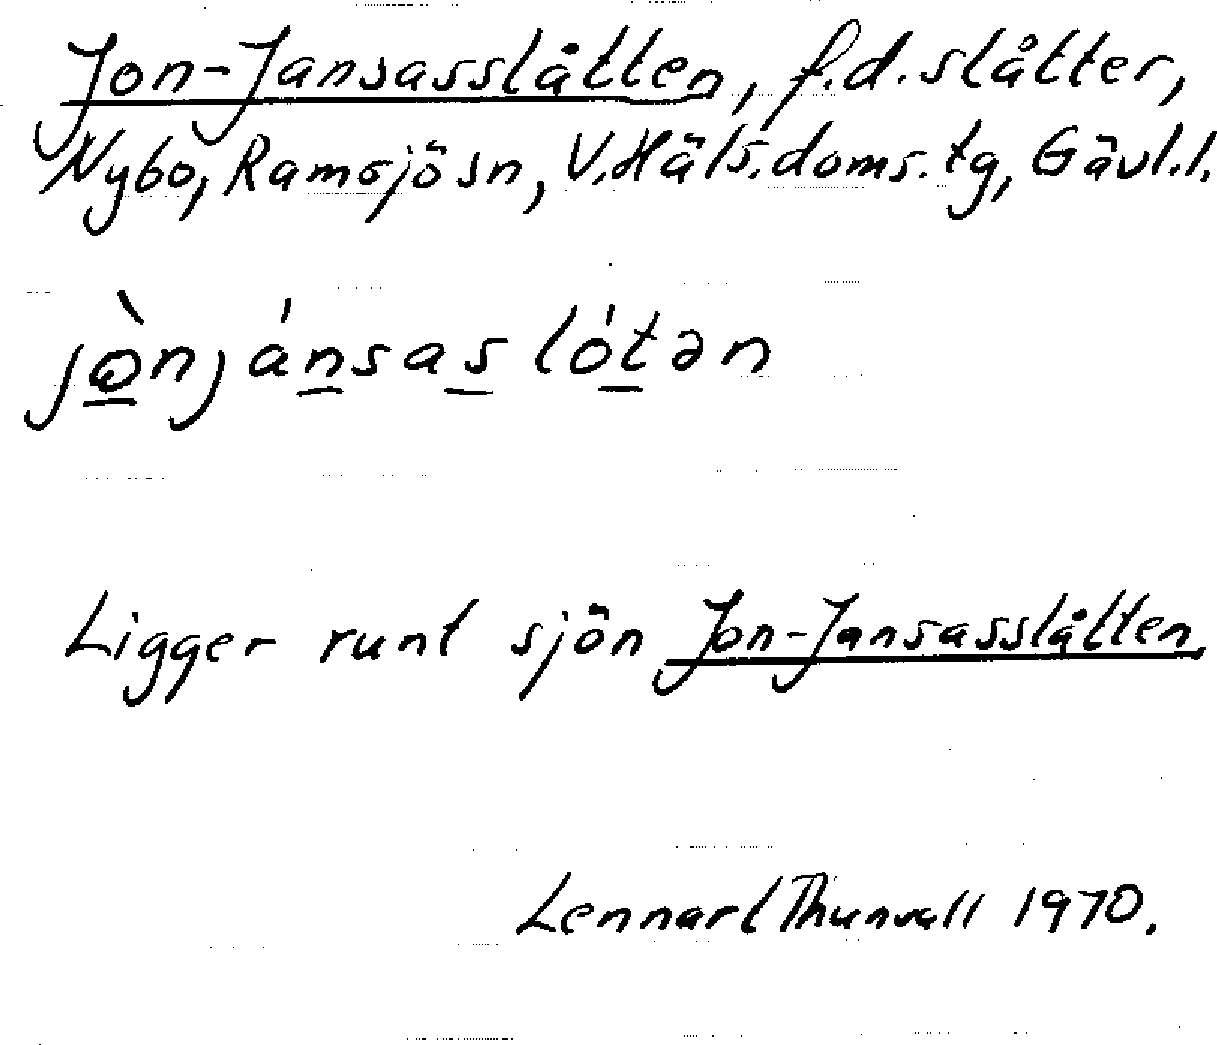 Jon-Jansasslåtten, f.d. slåtter,
Nybo, Ramsjö sn, V. Häls. doms. tg, Gävl. l.
jò̱njáṉsas̱ lóṯən
Ligger runt sjön Jon-Jansasslåtten.
Lennart Thunvall 1970.